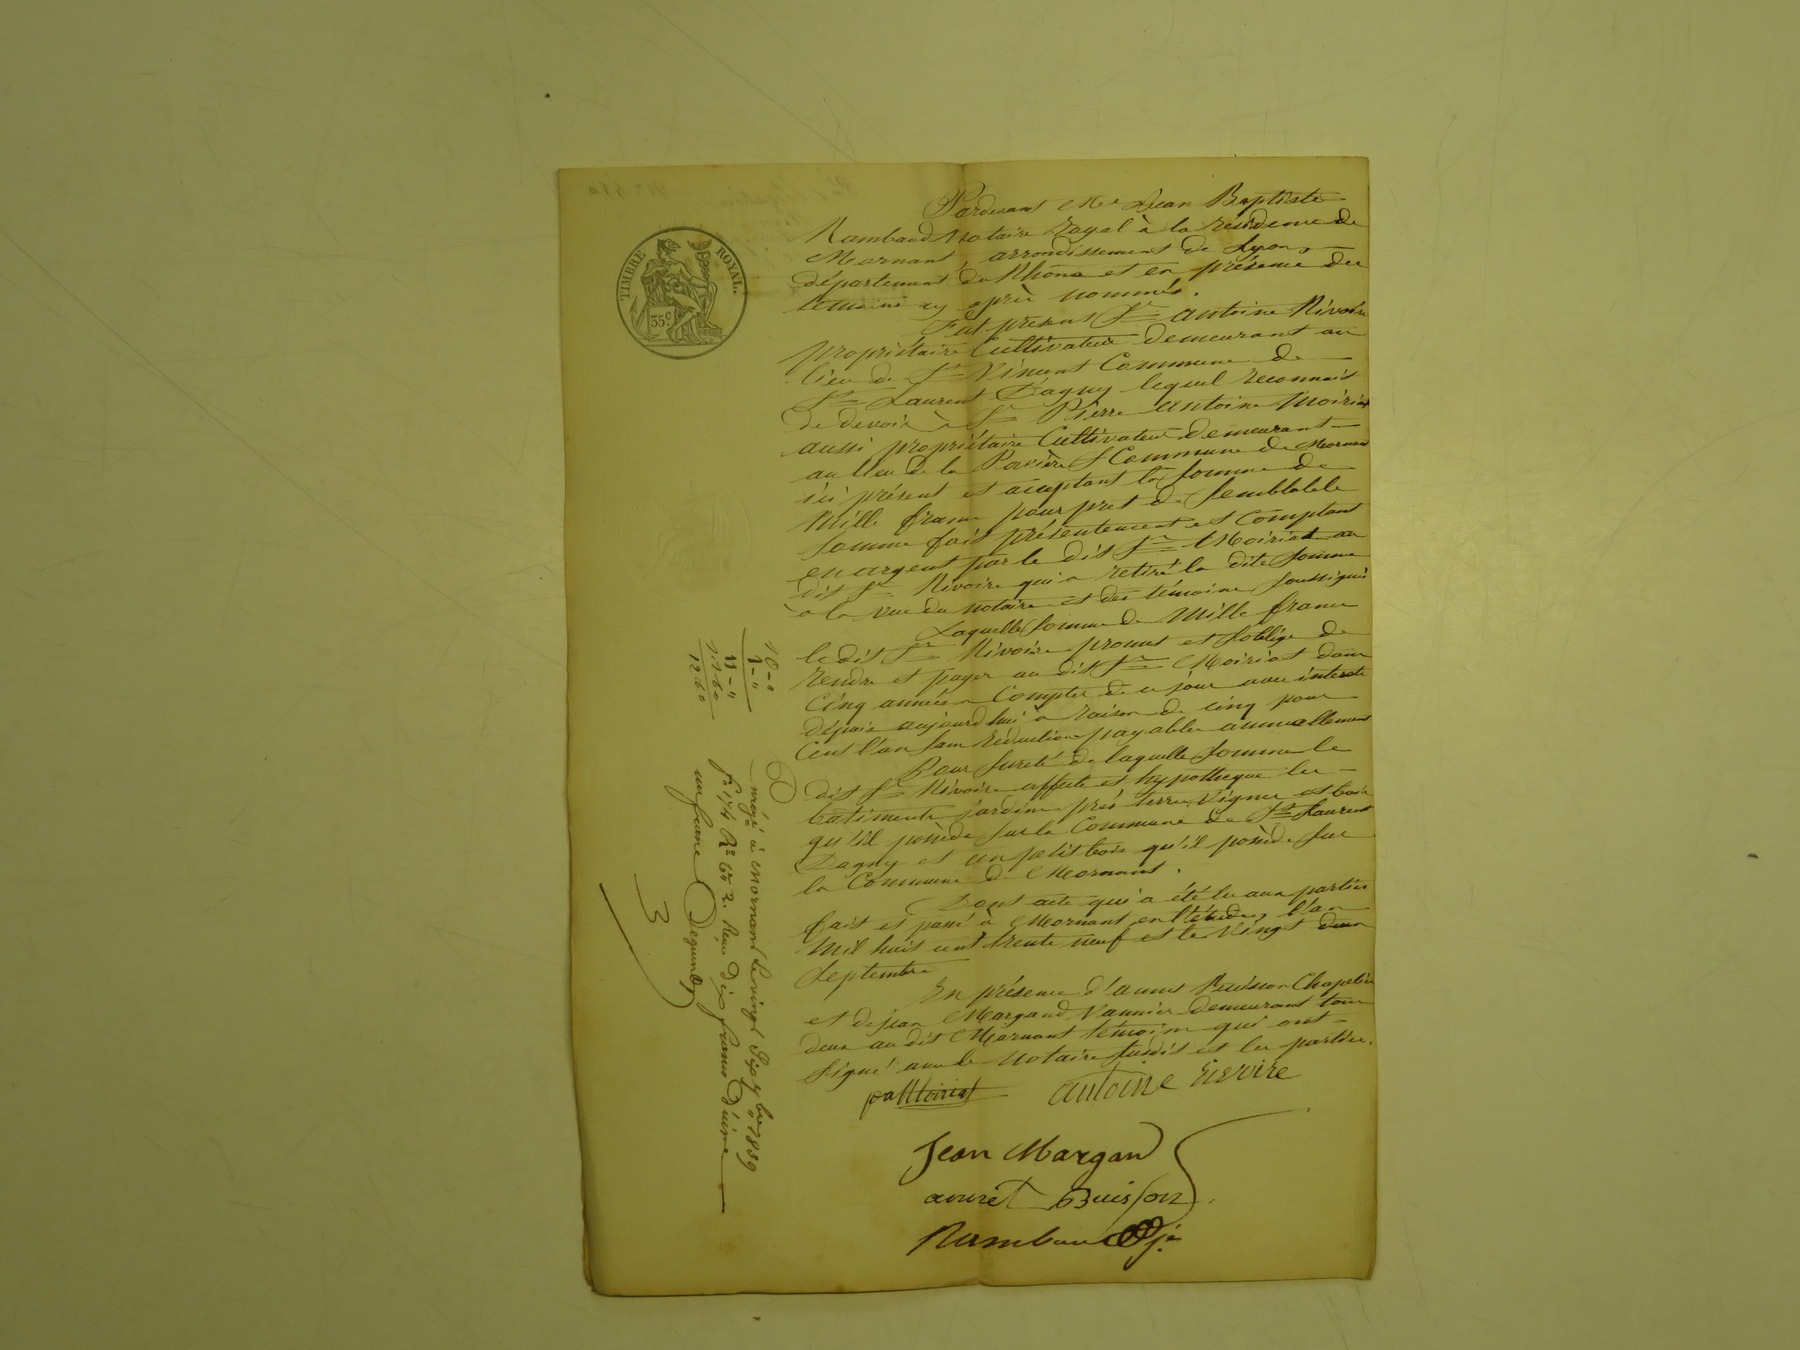 TIMBRE ROYAL.
35 c
Pardevant Me Jean Baptiste
Rambaud Notaire Royal à la résidence de
Mornant, arrondissement de Lyon,
département du Rhône et en présence des
témoins cy après nommés.
Fut présent Sr antoine Rivoire
propriétaire Cultivateur demeurant au
lieu de St Vincent Commune de
St Laurent D'agny lequel reconnait
de devoir à Sr Pierre antoine Moiriat
aussi propriétaire Cultivateur demeurant
au lieu de la Commune de Mornant
ici présent et acceptant la Somme de
Mille francs pour pret de Semblable
Somme fait présentement et Comptant
en argent par le dit Sr Moiriat au
dit Sr Rivoire qui a retiré la dite Somme
a la vue du notaire et des témoins Soussignés
Laquelle Somme de Mille francs
le dit Sr Rivoire promet et Soblige de
rendre et payer au dit Sr Moiriat dans
Cinq années a Compter de ce jour avec interets
dépuis aujourdhui a raison de cinq pour
Cent l'an Sans réduction payables annuellement
Pour Sureté de laquelle Somme le
dit Sr Rivoire affecte et hypotheque les
batiments jardins prés terres Vignes et bois
qu'il possède Sur la Commune de St Laurent
Dagny et un petit bois qu'il possède Sur
la Commune de Mornant.
Dont acte qui a été lu aux parties
fait et passé à Mornant en l'étude, l'an
Mil huit cent trente neuf et le Vingt deux
Septembre
En présence d'annet Buisson Chapelier
et de jean Margand Vannier demeurant tous
deux au dit Mornant témoins qui ont
Signé avec le Notaire Susdit et les parties.
paMoiriat antoine rievoire
Jean Margand
annet Buisson
Rambaud
10 - "
1 - "
11 - "
1.1 60
12.60
à Mornant le vingt Sept 7bre 1839
fo 174 Ro Co 2. Reçu dix francs décime
un franc
3